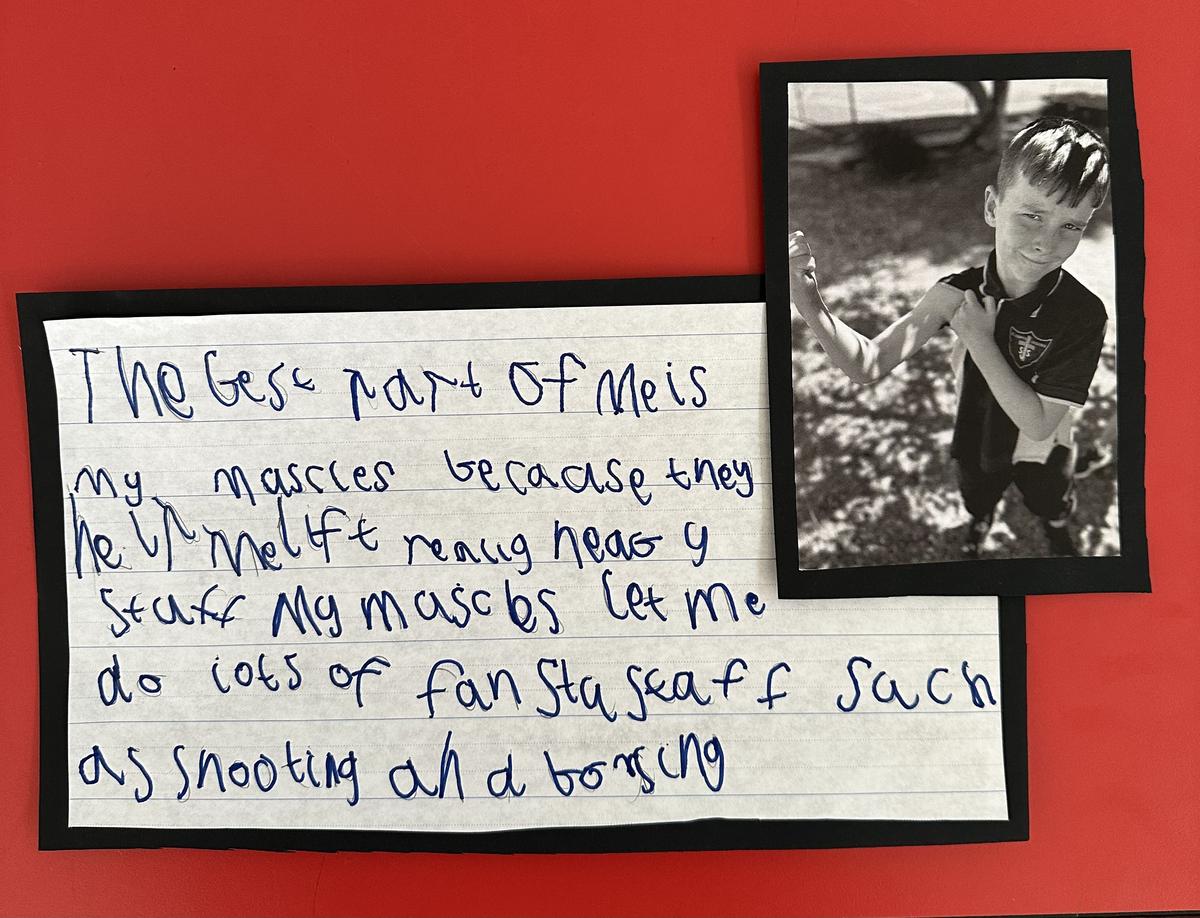 The best part of Me is
My mascles becaase they
help Me lift really heavy
staff My mascles let me
do lots of fan sta staff sach
as shooting and boxsing